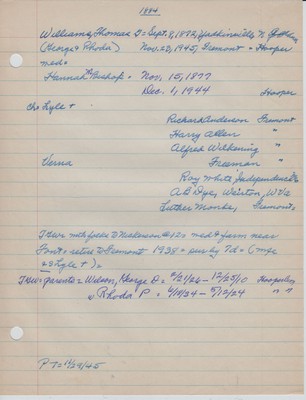 1884
Williams, Thomas D = Sept. 8, 1872, Yadkinville, N.
(George & Rhoda) Nov. 23, 1945, Fremont = Hooper
med =
Hannah Bishop = Nov, 15, 1877
Dec. 1, 1944 Hooper
Ch = Lyle +
Richard Anderson Fremont
Harry Allen "
Alfred Wilkening "
Verna Freeman "
Roy White, Independence
A.B. Dye, Weirton, W. Va
Luther Monke, Fremont
T. Hew mth folks to Nickerson # 12 = med & farm near
Font = retire to Fremont 1938 = sur by 7d = (mpc
+ s Lyle +) =
T. Hew = parents = Wilson, George D = 2/21/26 - 12/25/10 Hooper
" Rhoda P = 6/19/34 - 5/12/24 " "
P T = 11/29/45